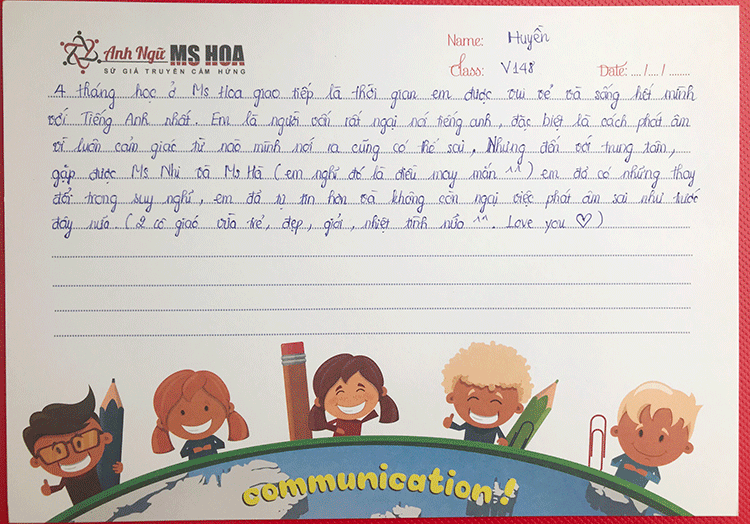 Anh Ngữ MS HOA
SỨ GIẢ TRUYỀN CẢM HỨNG
Name: Huyền
Class: V148 Date: .... /.... / ........
4 tháng học ở Ms Hoa giao tiếp là thời gian em được vui vẻ và sống hết mình
với Tiếng Anh nhất. Em là người vốn rất ngại nói tiếng anh, đặc biệt là cách phát âm
vì luôn cảm giác từ nào mình nói ra cũng có thể sai. Nhưng đến với trung tâm,
gặp được Ms Nhi và Ms Hà (em nghĩ đó là điều may mắn ^^) em đã có những thay
đổi trong suy nghĩ, em đã tự tin hơn và không còn ngại việc phát âm sai như trước
đây nữa. (2 cô giáo vừa trẻ, đẹp, giỏi, nhiệt tình nữa ^^. Love you ♡)
communication!